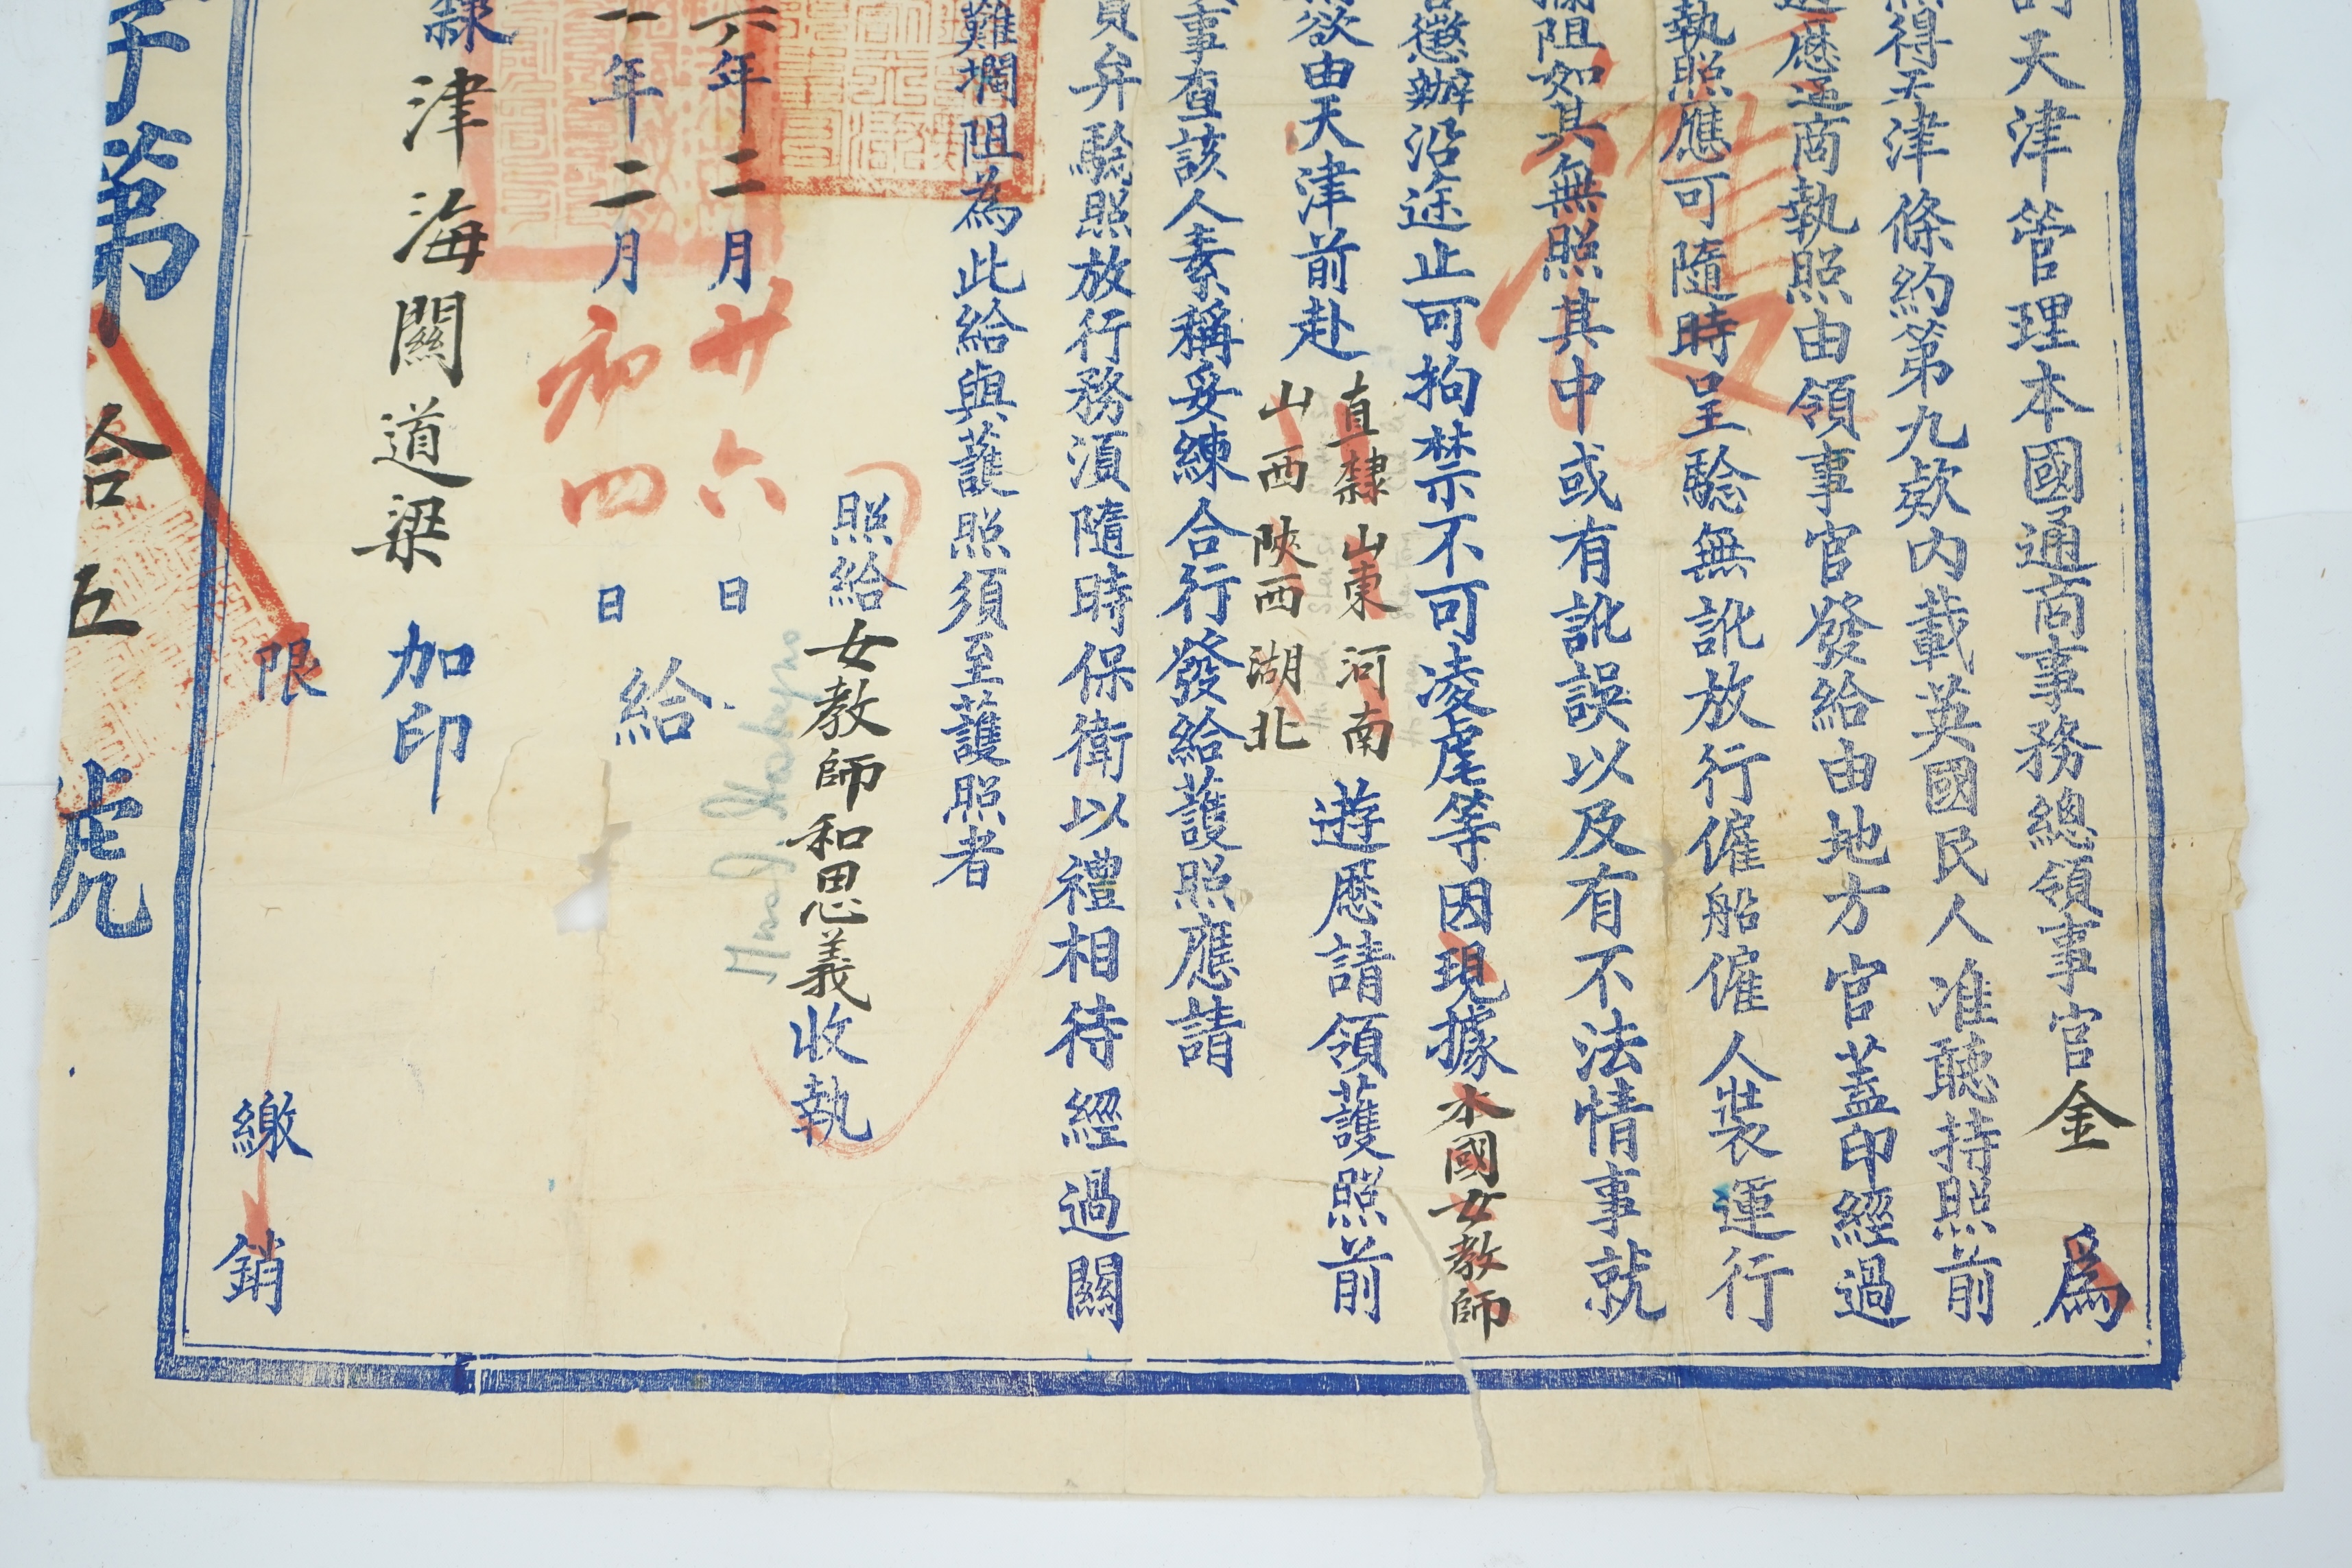 天津管理本國通商事務總領事官金 為
得天津條約第九款內載英國民人准聽持照前
遊歷通商執照由領事官發給由地方官蓋印經過
執照應可隨時呈驗無訛放行僱船僱人裝運行
阻如其無照其中或有訛誤以及有不法情事就
懲辦沿途止可拘禁不可凌虐等因現據本國女教師
欲由天津前赴直隸山東河南
山西陝西湖北遊歷請領護照前
事查該人素稱妥練合行發給護照應請
員弁驗照放行務須隨時保衛以禮相待經過關
難攔阻為此給與護照須至護照者
照給女教師和思義收執
六年二月廿六日
一年二月初四日
給
隸津海關道梁 加印
限 繳銷
字第 拾五 號